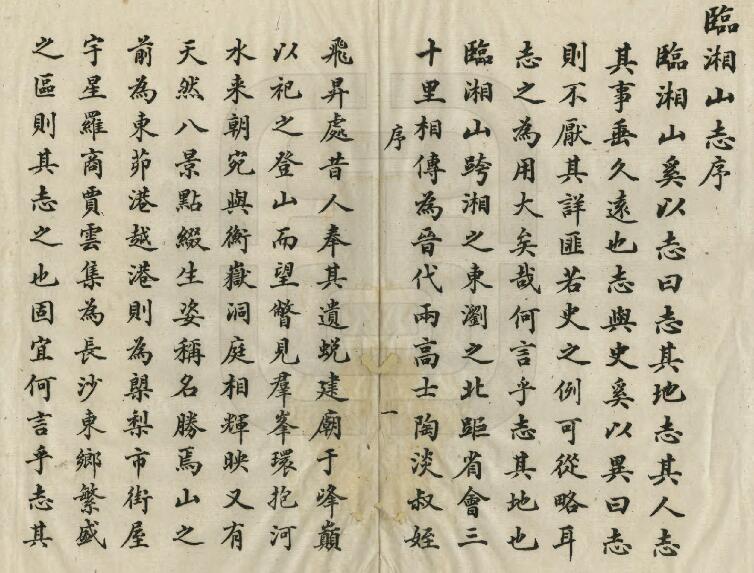 臨湘山志序
臨湘山奚以志曰志其地志其人志
其事垂久遠也志與史奚以異曰志
則不厭其詳匪若史之例可從略耳
志之為用大矣哉何言乎志其地也
臨湘山跨湘之東瀏之北距省會三
十里相傳為晉代兩高士陶淡叔姪
序
一
飛昇處昔人奉其遺蛻建廟于峰巔
以祀之登山而望瞥見羣峯環抱河
水来朝宛與衡嶽洞庭相輝映又有
天然八景點綴生姿稱名勝焉山之
前為東茆港越港則為㮾梨市街屋
宇星羅商賈雲集為長沙東鄉繁盛
之區則其志之也固宜何言乎志其